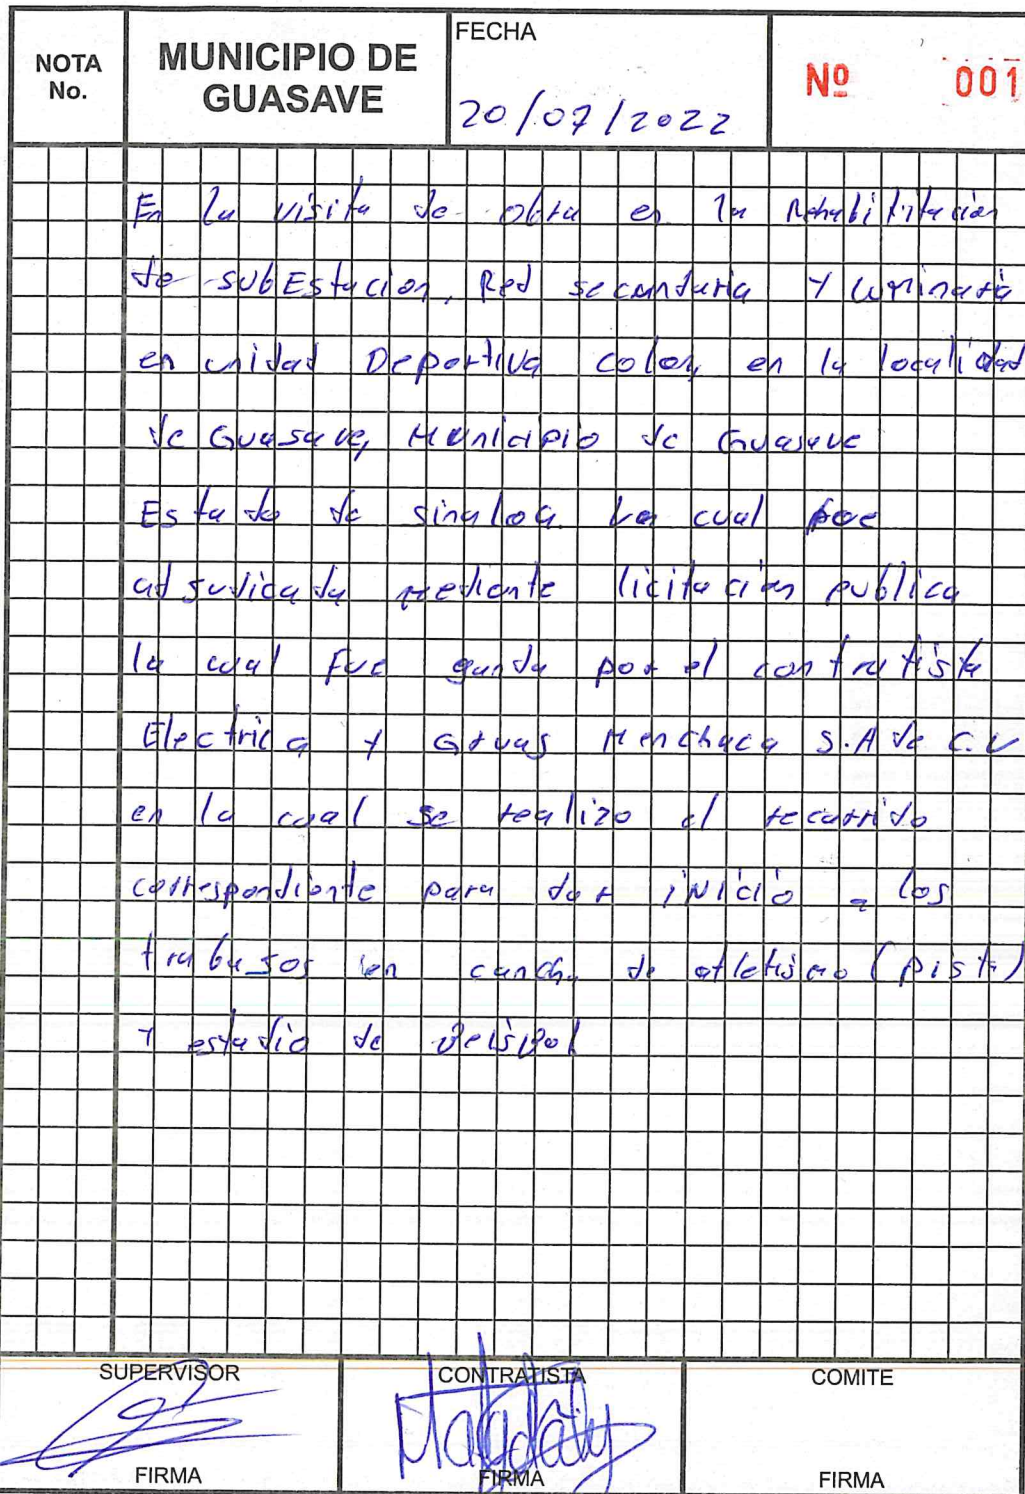 NOTA No.
MUNICIPIO DE GUASAVE
FECHA
20/07/2022
Nº 001
En la visita de obra en la Rehabilitacion
de subEstacion, Red secundaria y luminaria
en unidad Deportiva colon, en la localidad
de Guasave, Municipio de Guasave
Estado de sinaloa. La cual fue
adjudicada mediante licitacion publica
la cual fue ganda por el contratista
Electrica y Gruas Menchaca S.A de C.V
en la cual se realizo el recorrido
correspondiente para dar iNicio a los
trabajos en cancha de atletismo (pista)
y estadio de Beisbol
SUPERVISOR
CONTRATISTA
COMITE
FIRMA
FIRMA
FIRMA